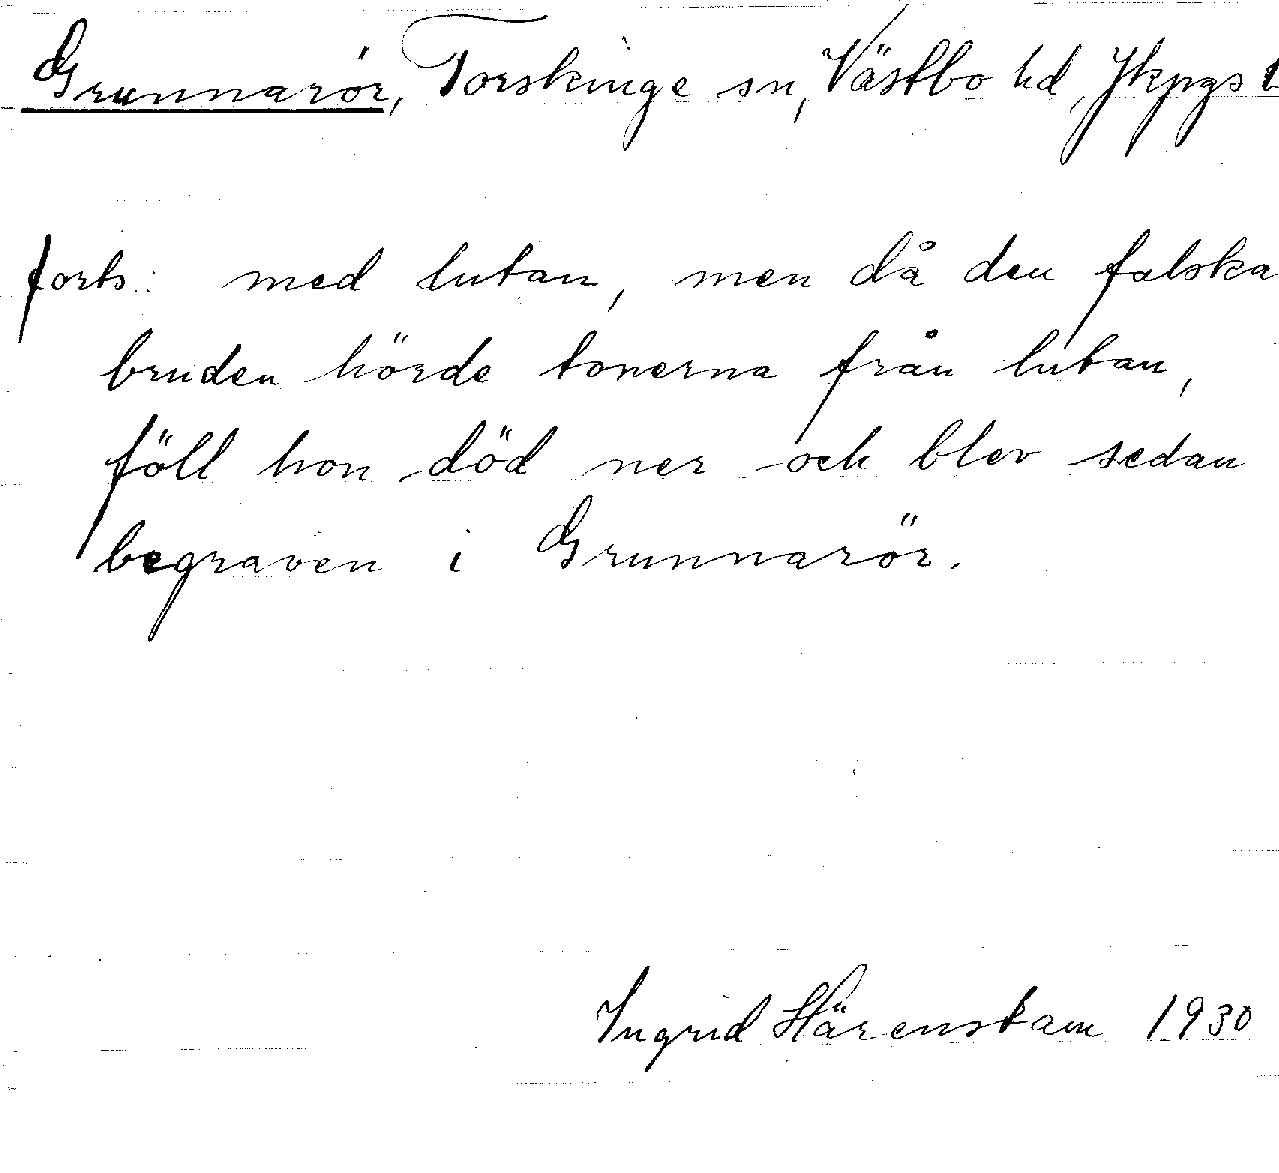 Grunnarör, Torskinge sn, Västbo hd, Jkpgs l
forts: med lutan, men då den falska
bruden hörde tonerna från lutan,
föll hon död ner och blev sedan
begraven i Grunnarör.
Ingrid Härenstam 1930